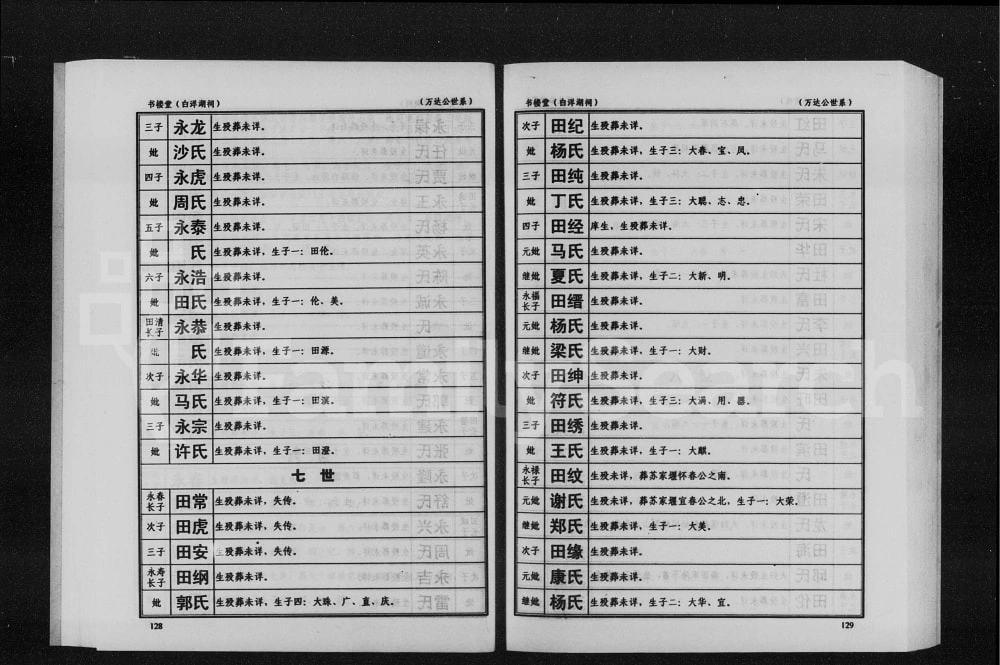 书楼堂(白洋湖祠) (万达公世系)
三子 永龙 生殁葬未详。
妣 沙氏 生殁葬未详。
四子 永虎 生殁葬未详。
妣 周氏 生殁葬未详。
五子 永泰 生殁葬未详。
妣 氏 生殁葬未详,生子一:田伦。
六子 永浩 生殁葬未详。
妣 田氏 生殁葬未详,生子一:伦、美。
田清长子 永恭 生殁葬未详。
妣 氏 生殁葬未详,生子一:田源。
次子 永华 生殁葬未详。
妣 马氏 生殁葬未详,生子一:田滨。
三子 永宗 生殁葬未详。
妣 许氏 生殁葬未详,生子一:田澄。
七世
永春长子 田常 生殁葬未详,失传。
次子 田虎 生殁葬未详,失传。
三子 田安 生殁葬未详,失传。
永寿长子 田纲 生殁葬未详。
妣 郭氏 生殁葬未详,生子四:大珠、广、直、庆。
128
书楼堂(白洋湖祠) (万达公世系)
次子 田纪 生殁葬未详。
妣 杨氏 生殁葬未详,生子三:大春、宝、凤。
三子 田纯 生殁葬未详。
妣 丁氏 生殁葬未详,生子三:大聪、志、忠。
四子 田经 庠生,生殁葬未详。
元妣 马氏 生殁葬未详。
继妣 夏氏 生殁葬未详,生子二:大新、明。
永福长子 田缙 生殁葬未详。
元妣 杨氏 生殁葬未详。
继妣 梁氏 生殁葬未详,生子一:大财。
次子 田绅 生殁葬未详。
妣 符氏 生殁葬未详,生子三:大满、用、器。
三子 田绣 生殁葬未详。
妣 王氏 生殁葬未详,生子一:大麒。
永禄长子 田纹 生殁未详,葬苏家堰怀春公之南。
元妣 谢氏 生殁未详,葬苏家堰宜春公之北,生子一:大荣。
继妣 郑氏 生殁葬未详,生子一:大美。
次子 田缘 生殁葬未详。
元妣 康氏 生殁葬未详。
继妣 杨氏 生殁葬未详,生子二:大华、宜。
129
FamilySearch